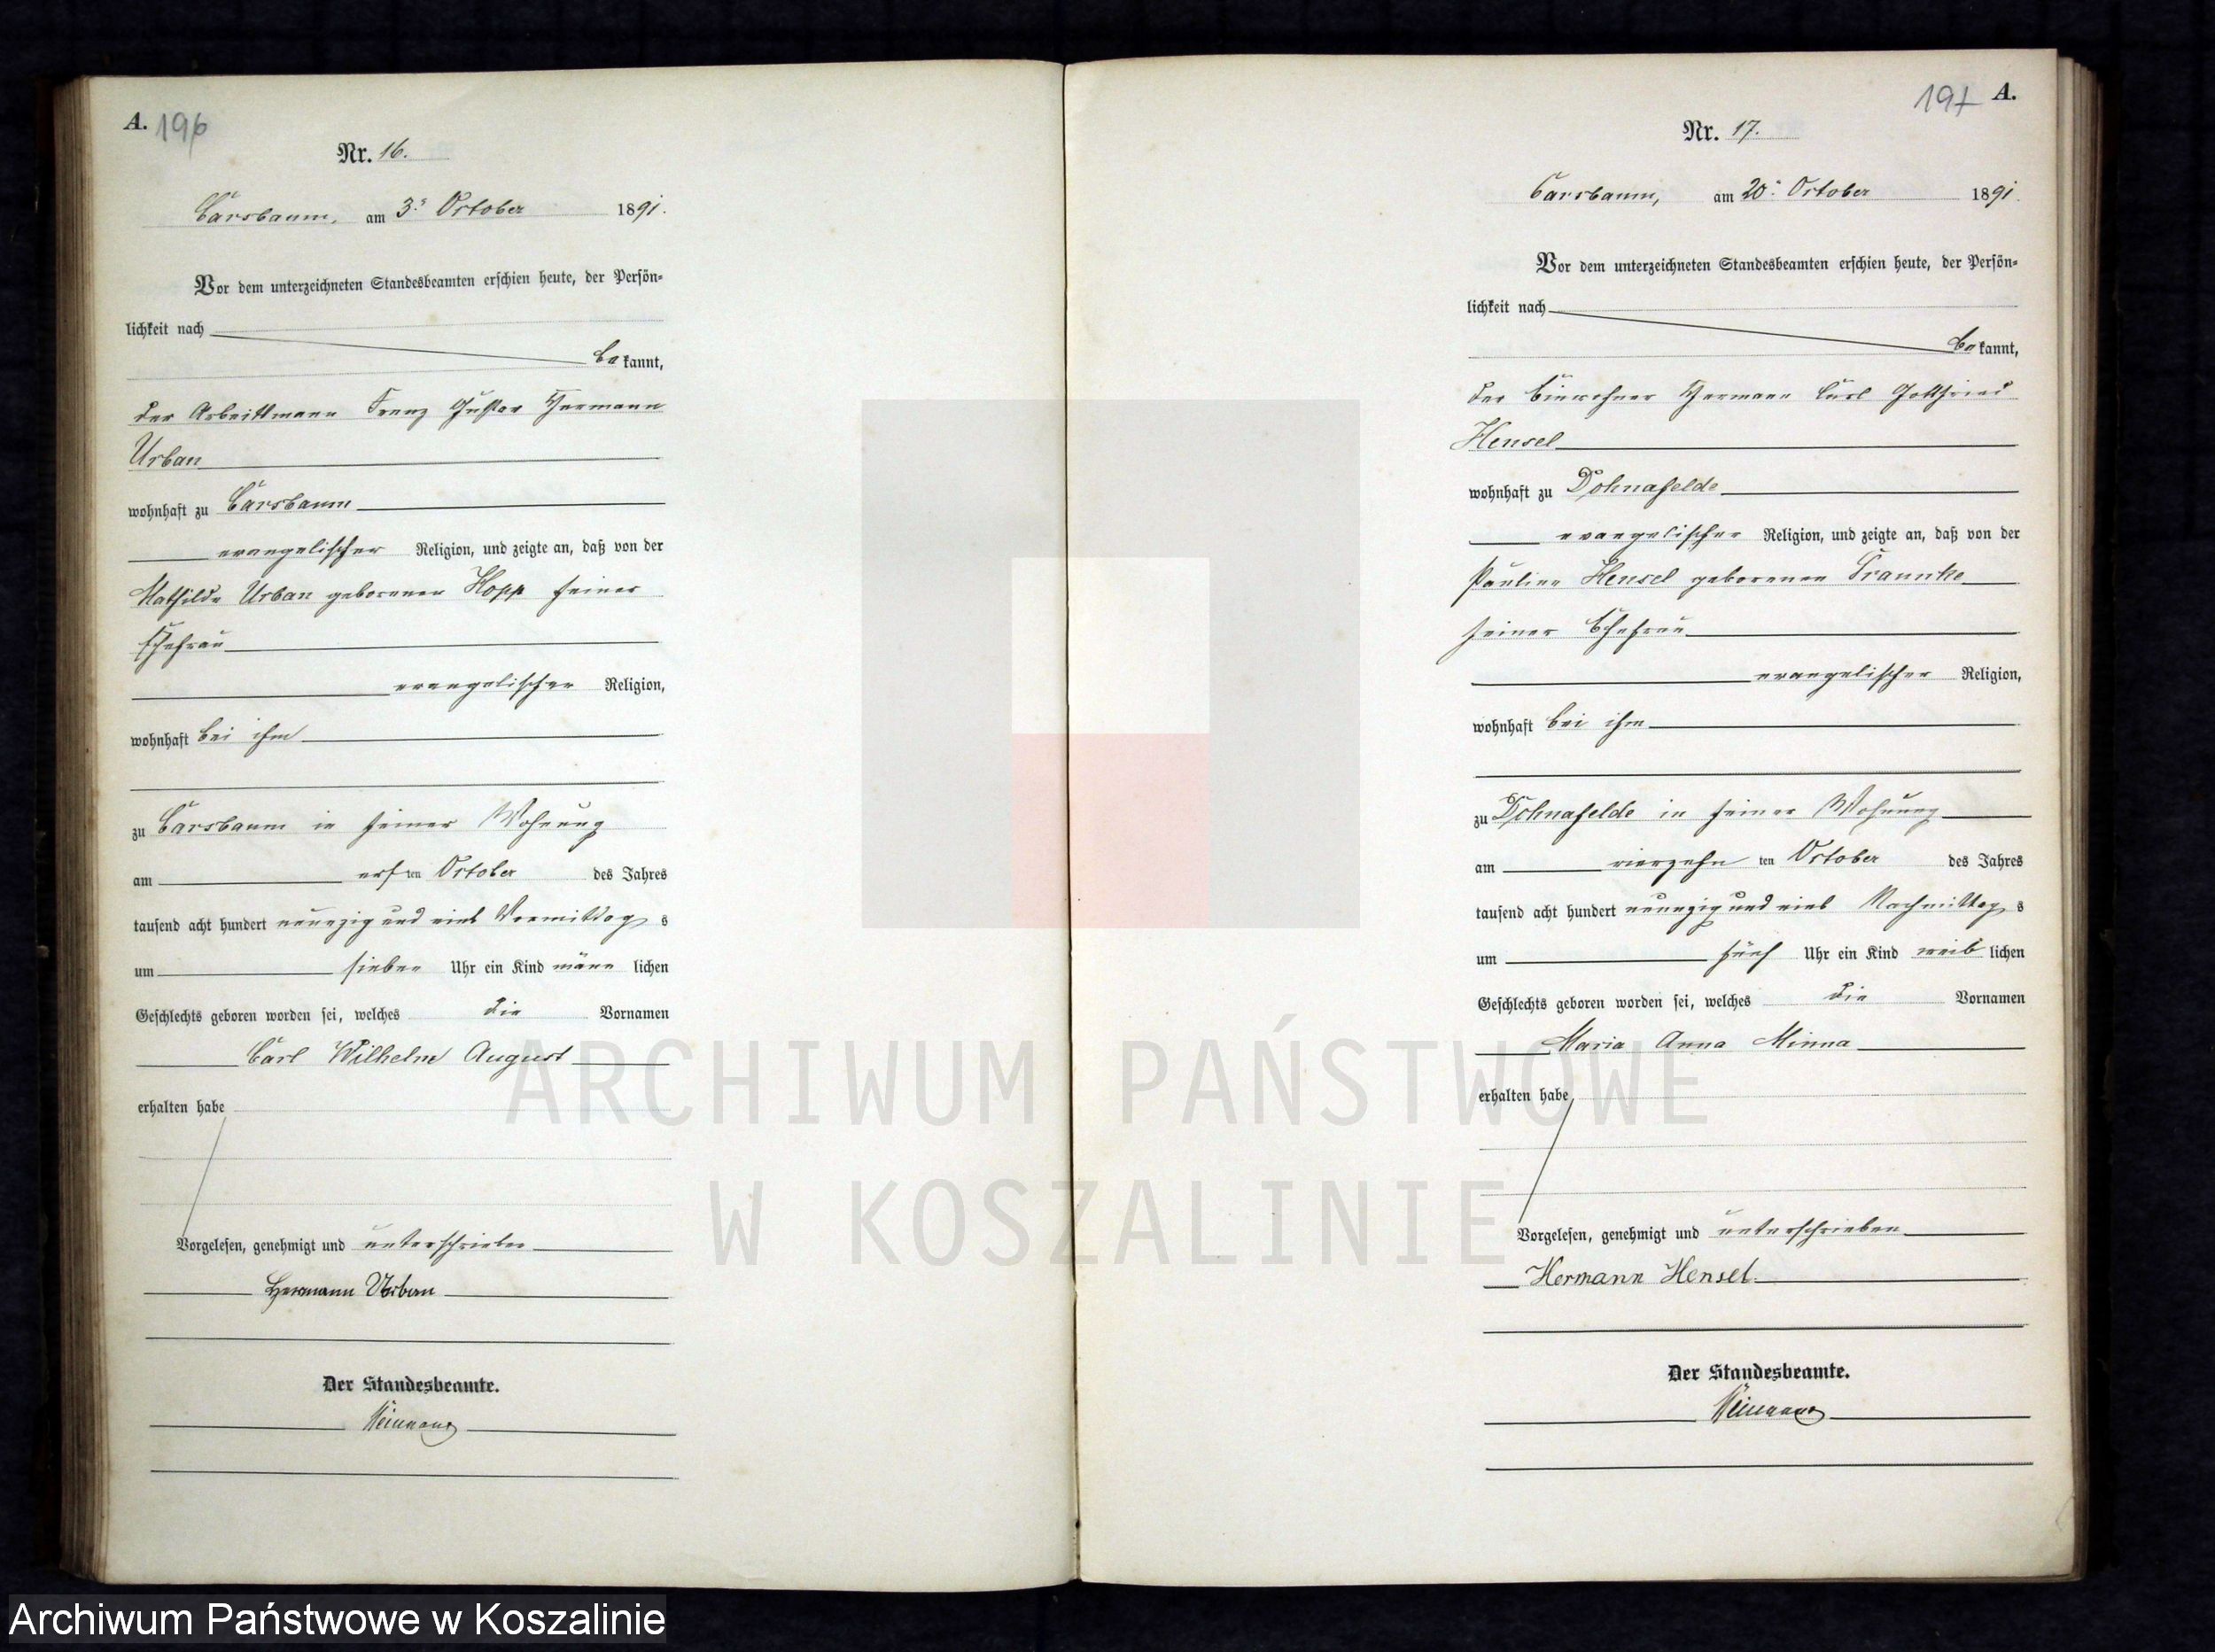 A. 196
Nr. 16.
Carsbaum, am 3. October 1891.
Vor dem unterzeichneten Standesbeamten erschien heute, der Persön-
lichkeit nach
bekannt,
der Arbeitsmann Franz Gustav Hermann
Urban
wohnhaft zu Carsbaum
evangelischer Religion, und zeigte an, daß von der
Mathilde Urban geborenen Hopp seiner
Ehefrau
evangelischer Religion,
wohnhaft bei ihm
zu Carsbaum in seiner Wohnung
am ersten October des Jahres
tausend acht hundert neunzig und eins Vormittags
um sieben Uhr ein Kind männlichen
Geschlechts geboren worden sei, welches die Vornamen
Carl Wilhelm August
erhalten habe
Vorgelesen, genehmigt und unterschrieben
Hermann Urban
Der Standesbeamte.
197 A.
Nr. 17.
Carsbaum, am 20. October 1891.
Vor dem unterzeichneten Standesbeamten erschien heute, der Persön-
lichkeit nach
bekannt,
der Einwohner Hermann Carl Gottfried
Hensel
wohnhaft zu Dohnafelde
evangelischer Religion, und zeigte an, daß von der
Pauline Hensel geborenen
seiner Ehefrau
evangelischer Religion,
wohnhaft bei ihm
zu Dohnafelde in seiner Wohnung
am vierzehnten October des Jahres
tausend acht hundert neunzig und eins Nachmittags
um fünf Uhr ein Kind weiblichen
Geschlechts geboren worden sei, welches die Vornamen
Maria Anna Minna
erhalten habe
Vorgelesen, genehmigt und unterschrieben
Hermann Hensel.
Der Standesbeamte.
ARCHIWUM PAŃSTWOWE
W KOSZALINIE
Archiwum Państwowe w Koszalinie